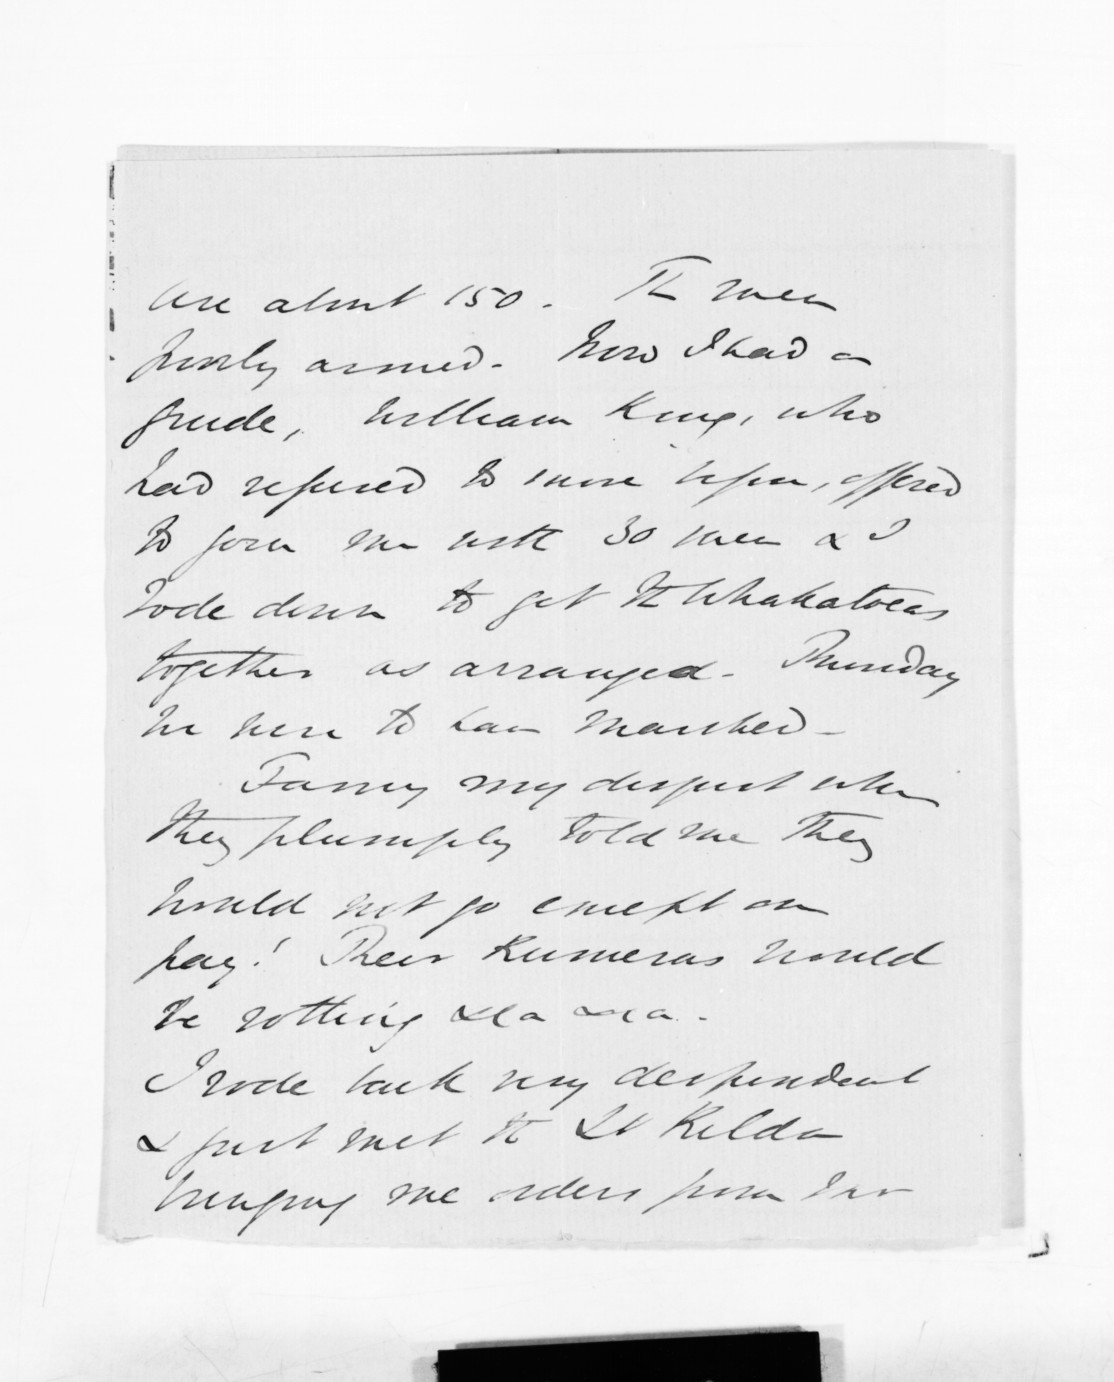 are about 150. The men
poorly armed. Now I had a
guide, William King, who
had refused to move before, offered
to join me with 30 men & I
rode down to get the Whakatoeas
together as arranged. Thursday
we were to have marched -
Fancy my disgust when
they plumply told me they
would not go except on
pay! Their Kumeras would
be nothing &ca &ca.
I rode back very despondent
& just met the St Kilda
bringing me orders from